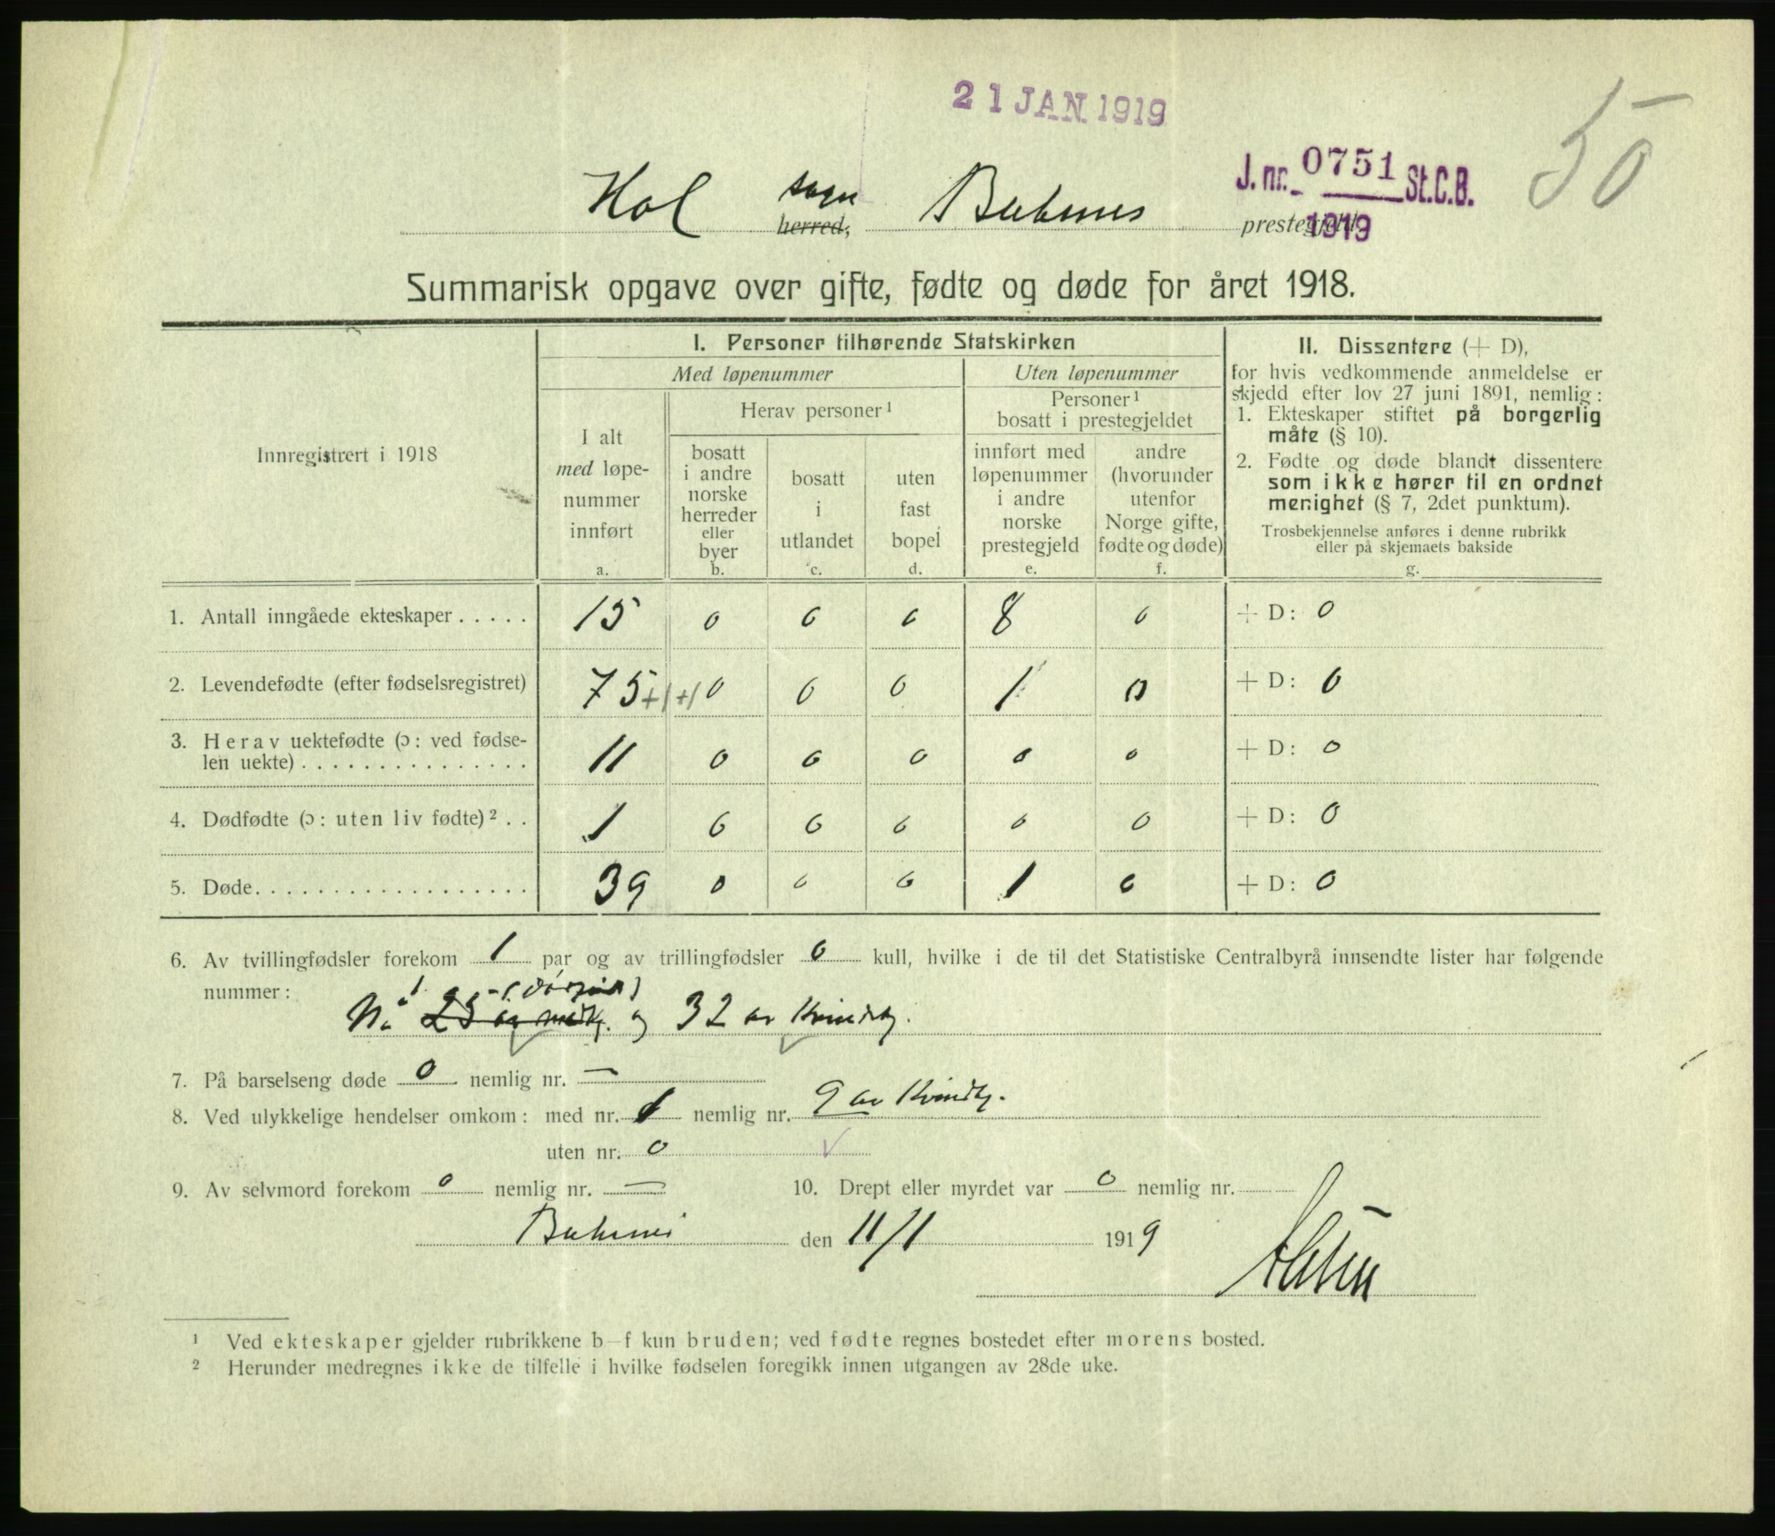 21 JAN 1919
50
J. nr. 0751 St.C.B.
1919
Hol sogn herred, Buksnes prestegjeld.
Summarisk opgave over gifte, fødte og døde for året 1918.
Innregistrert i 1918
I. Personer tilhørende Statskirken
Med løpenummer
Uten løpenummer
I alt
med løpe-
nummer
innført
a.
Herav personer ¹
bosatt
i andre
norske
herreder
eller
byer
b.
bosatt
i
utlandet
c.
uten
fast
bopel
d.
Personer ¹
bosatt i prestegjeldet
innført med
løpenummer
i andre
norske
prestegjeld
e.
andre
(hvorunder
utenfor
Norge gifte,
fødte og døde)
f.
II. Dissentere (+ D),
for hvis vedkommende anmeldelse er
skjedd efter lov 27 juni 1891, nemlig:
1. Ekteskaper stiftet på borgerlig
måte (§ 10).
2. Fødte og døde blandt dissentere
som ikke hører til en ordnet
menighet (§ 7, 2det punktum).
Trosbekjennelse anføres i denne rubrikk
eller på skjemaets bakside
g.
1. Antall inngåede ekteskaper . . . . . 15 0 0 0 8 0 + D: 0
2. Levendefødte (efter fødselsregistret) 75 +1 +1 0 0 0 1 0 + D: 0
3. Herav uektefødte (ɔ: ved fødse-
len uekte) . . . . . . . . . . . . . . . 11 0 0 0 0 0 + D: 0
4. Dødfødte (ɔ: uten liv fødte) ² . . 1 0 0 0 0 0 + D: 0
5. Døde. . . . . . . . . . . . . . . . . . . 39 0 0 0 1 0 + D: 0
6. Av tvillingfødsler forekom 1 par og av trillingfødsler 0 kull, hvilke i de til det Statistiske Centralbyrå innsendte lister har følgende
nummer:
No 25 og og 32 av Kvindek.
7. På barselseng døde 0 nemlig nr. —
8. Ved ulykkelige hendelser omkom: med nr. 1 nemlig nr. 9 av Kvindek.
uten nr. 0
9. Av selvmord forekom 0 nemlig nr. — 10. Drept eller myrdet var 0 nemlig nr.
Buksnes den 11/1 1919
¹ Ved ekteskaper gjelder rubrikkene b–f kun bruden; ved fødte regnes bostedet efter morens bosted.
² Herunder medregnes ikke de tilfelle i hvilke fødselen foregikk innen utgangen av 28de uke.